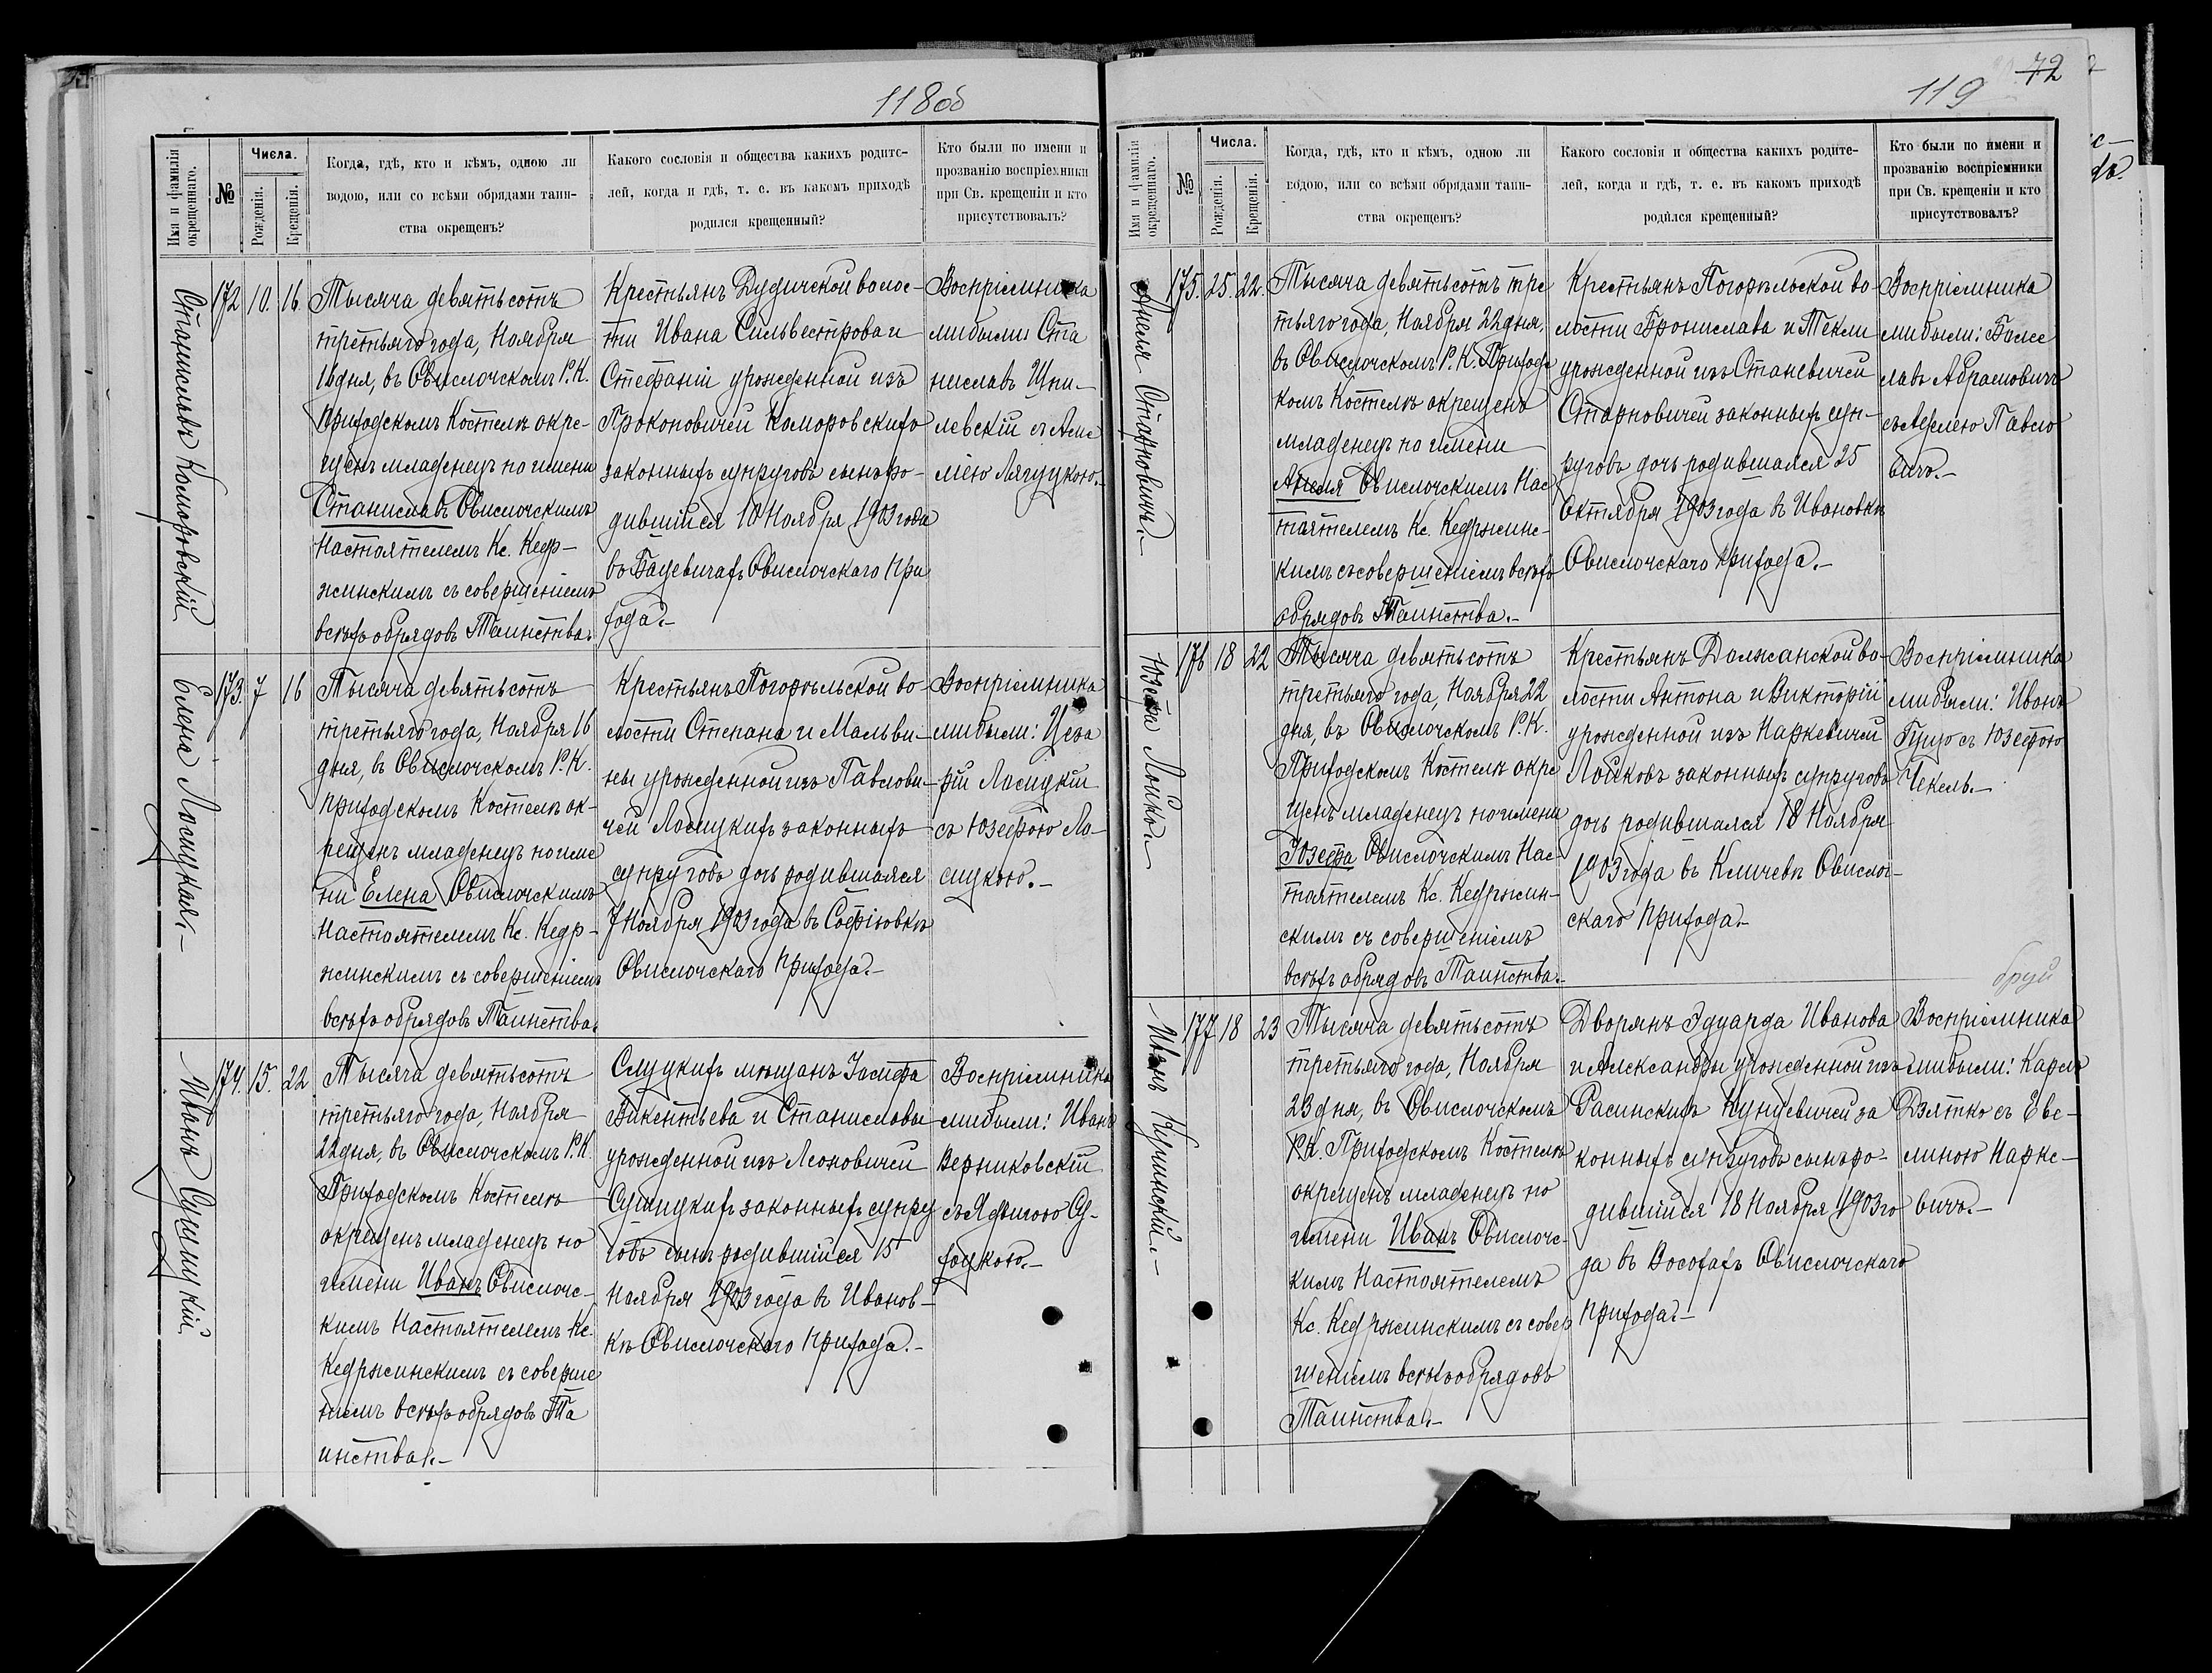 118об
Имя и фамилія
окрещеннаго.
№
Числа.
Рожденія.
Крещенія.
Когда, гдѣ, кто и кѣмъ, одною ли
водою, или со всѣми обрядами таин-
ства окрещенъ?
Какого сословія и общества какихъ родите-
лей, когда и гдѣ, т. е. въ какомъ приходѣ
родился крещенный?
Кто были по имени и
прозванію воспріемники
при Св. крещеніи и кто
присутствовалъ?
Станиславъ Коморовскій
172
10.
16.
Тысяча девятьсотъ
третьяго года, Ноября
16 дня, въ Овислочскомъ Р.К.
Приходскомъ Костелѣ окре-
щенъ младенецъ по имени
Станиславъ Овислочскимъ
Настоятелемъ Кс. Кедр-
жинскимъ съ совершеніемъ
всѣхъ обрядовъ Таинства.
Крестьянъ Дудичской волос-
ти Ивана Сильвестрова и
Стефаніи урожденной изъ
Прокоповичей Коморовскихъ
законныхъ супруговъ сынъ ро-
дившійся 10 Ноября 1903 года
въ Бацевичахъ Овислочскаго При
хода.-
Воспріемника
ми были: Ста
ниславъ Шпи-
левскій съ Аме
ліею Лягуцкою.-
Елена Лосицкая.-
173.
7
16
Тысяча девятьсотъ
третьяго года, Ноября 16
дня, въ Овислочскомъ Р.К.
приходскомъ Костелѣ ок-
рещенъ младенецъ по име
ни Елена Овислочскимъ
Настоятелемъ Кс. Кедр-
жинскимъ съ совершеніемъ
всѣхъ обрядовъ Таинства.
Крестьянъ Погорѣльской во-
лости Степана и Мальви-
ны урожденной изъ Павлови-
чей Лосицкихъ законныхъ
супруговъ дочь родившаяся
7 Ноября 1903 года въ Софіювкѣ
Овислочскаго Прихода.-
Воспріемника
ми были: Цеза
рій Лосицкій
съ Юзефою Ло-
сицкою.-
Иванъ Сушицкій
174.
15.
22
Тысяча девятьсотъ
третьяго года, Ноября
22 дня, въ Овислочскомъ Р.К.
Приходскомъ Костелѣ
окрещенъ младенецъ по
имени Иванъ Овислочс-
кимъ Настоятелемъ Кс.
Кедржинскимъ съ соверше
ніемъ всѣхъ обрядовъ Та
инства.-
Слуцкихъ мѣщанъ Іосифа
Викентьева и Станиславы
урожденной изъ Леоновичей
Сушицкихъ законныхъ супру
говъ сынъ родившійся 15
Ноября 1903 года въ Иванов-
кѣ Овислочскаго Прихода.-
Воспріемника
ми были: Иванъ
Верниковскій
съ Ядвигою Су-
хоцкою.-
119
72
Имя и фамилія
окрещеннаго.
№
Числа.
Рожденія.
Крещенія.
Когда, гдѣ, кто и кѣмъ, одною ли
водою, или со всѣми обрядами таин-
ства окрещенъ?
Какого сословія и общества какихъ родите-
лей, когда и гдѣ, т. е. въ какомъ приходѣ
родился крещенный?
Кто были по имени и
прозванію воспріемники
при Св. крещеніи и кто
присутствовалъ?
Анеля
175.
25.
22.
Тысяча девятьсотъ тре
тьяго года, Ноября 22 дня,
въ Овислочскомъ Р.К. Приходс
комъ Костелѣ окрещенъ
младенецъ по имени
Анеля Овислочскимъ Нас
тоятелемъ Кс. Кедржинс-
кимъ съ совершеніемъ всѣхъ
обрядовъ Таинства.-
Крестьянъ Погорѣльской во-
лости Бронислава и Текли
урожденной изъ Станевичей
законныхъ суп-
руговъ дочь родившаяся 25
Октября 1903 года въ Ивановкѣ
Овислочскаго Прихода.-
Воспріемника
ми были: Болес
лавъ Абрамовичъ
съ Анелею Павло
вичъ.-
Юзефа Лойко.-
176
18
22
Тысяча девятьсотъ
третьяго года, Ноября 22
дня, въ Овислочскомъ Р.К.
Приходскомъ Костелѣ окре
щенъ младенецъ по имени
Юзефа Овислочскимъ Нас
тоятелемъ Кс. Кедржин-
скимъ съ совершеніемъ
всѣхъ обрядовъ Таинства.-
Крестьянъ Должанской во-
лости Антона и Викторіи
урожденной изъ Наркевичей
Лойковъ законныхъ супруговъ
дочь родившаяся 18 Ноября
1903 года въ Кличевѣ Овислоч-
скаго Прихода.-
Воспріемника
ми были: Иванъ
съ Юзефою
Чекель.-
бруй
Иванъ
177
18
23
Тысяча девятьсотъ
третьяго года, Ноября
23 дня, въ Овислочскомъ
Р.К. Приходскомъ Костелѣ
окрещенъ младенецъ по
имени Иванъ Овислочс-
кимъ Настоятелемъ
Кс. Кедржинскимъ съ совер
шеніемъ всѣхъ обрядовъ
Таинства.-
Дворянъ Эдуарда Иванова
и Александры урожденной изъ
за
конныхъ супруговъ сынъ ро-
дившійся 18 Ноября 1903 го
да въ Восохахъ Овислочскаго
Прихода.-
Воспріемника
ми были: Карлъ
Дзятко съ Еве-
линою Нарке-
вичъ.-